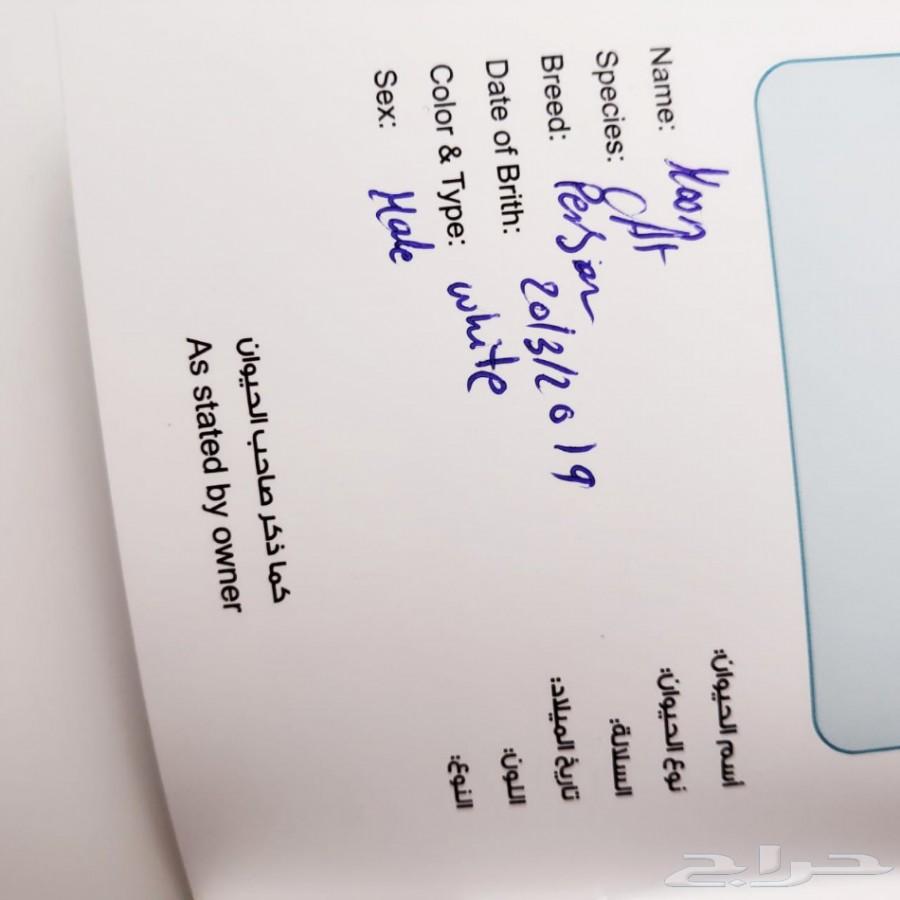 Name: Moon أسم الحيوان:
Species: CAt نوع الحيوان:
Breed: Persian السلالة:
Date of Brith: 20/3/2019 تاريخ الميلاد:
Color & Type: white اللون:
Sex: Male النوع:
كما ذكر صاحب الحيوان
As stated by owner
حراج